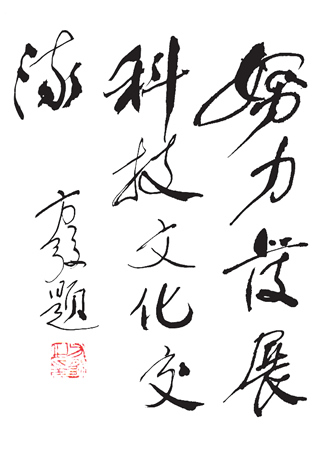 努力发展
科技文化交
流
方毅题